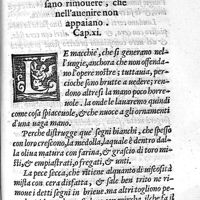 sano rimouere, che
nell'auenire non
appaiano.
Cap.xi.
LE macchie, che si generano nel-
l'ungie, anchora che non offenda-
no l'opere nostre; tuttauia, per-
cioche sono brutte a uedere; ren-
dono altresi la mano poco horre-
uole. la onde le lauaremo quindi
come cosa spiaceuole, & che nuoce a gli ornamenti
d'una uaga mano.
Perche distrugge que' segni bianchi, che spesso
con loro crescono, la medolla, laquale è dentro dal-
la oliua matura con farina, & grascio di toro mi-
sti, & empiastrati, o fregati, & unti.
La pece secca, che ritiene alquanto di
mista con cera disfatta, & sale ben trito ne ri-
mone i detti segni in brieue. ma altri togliono pe-